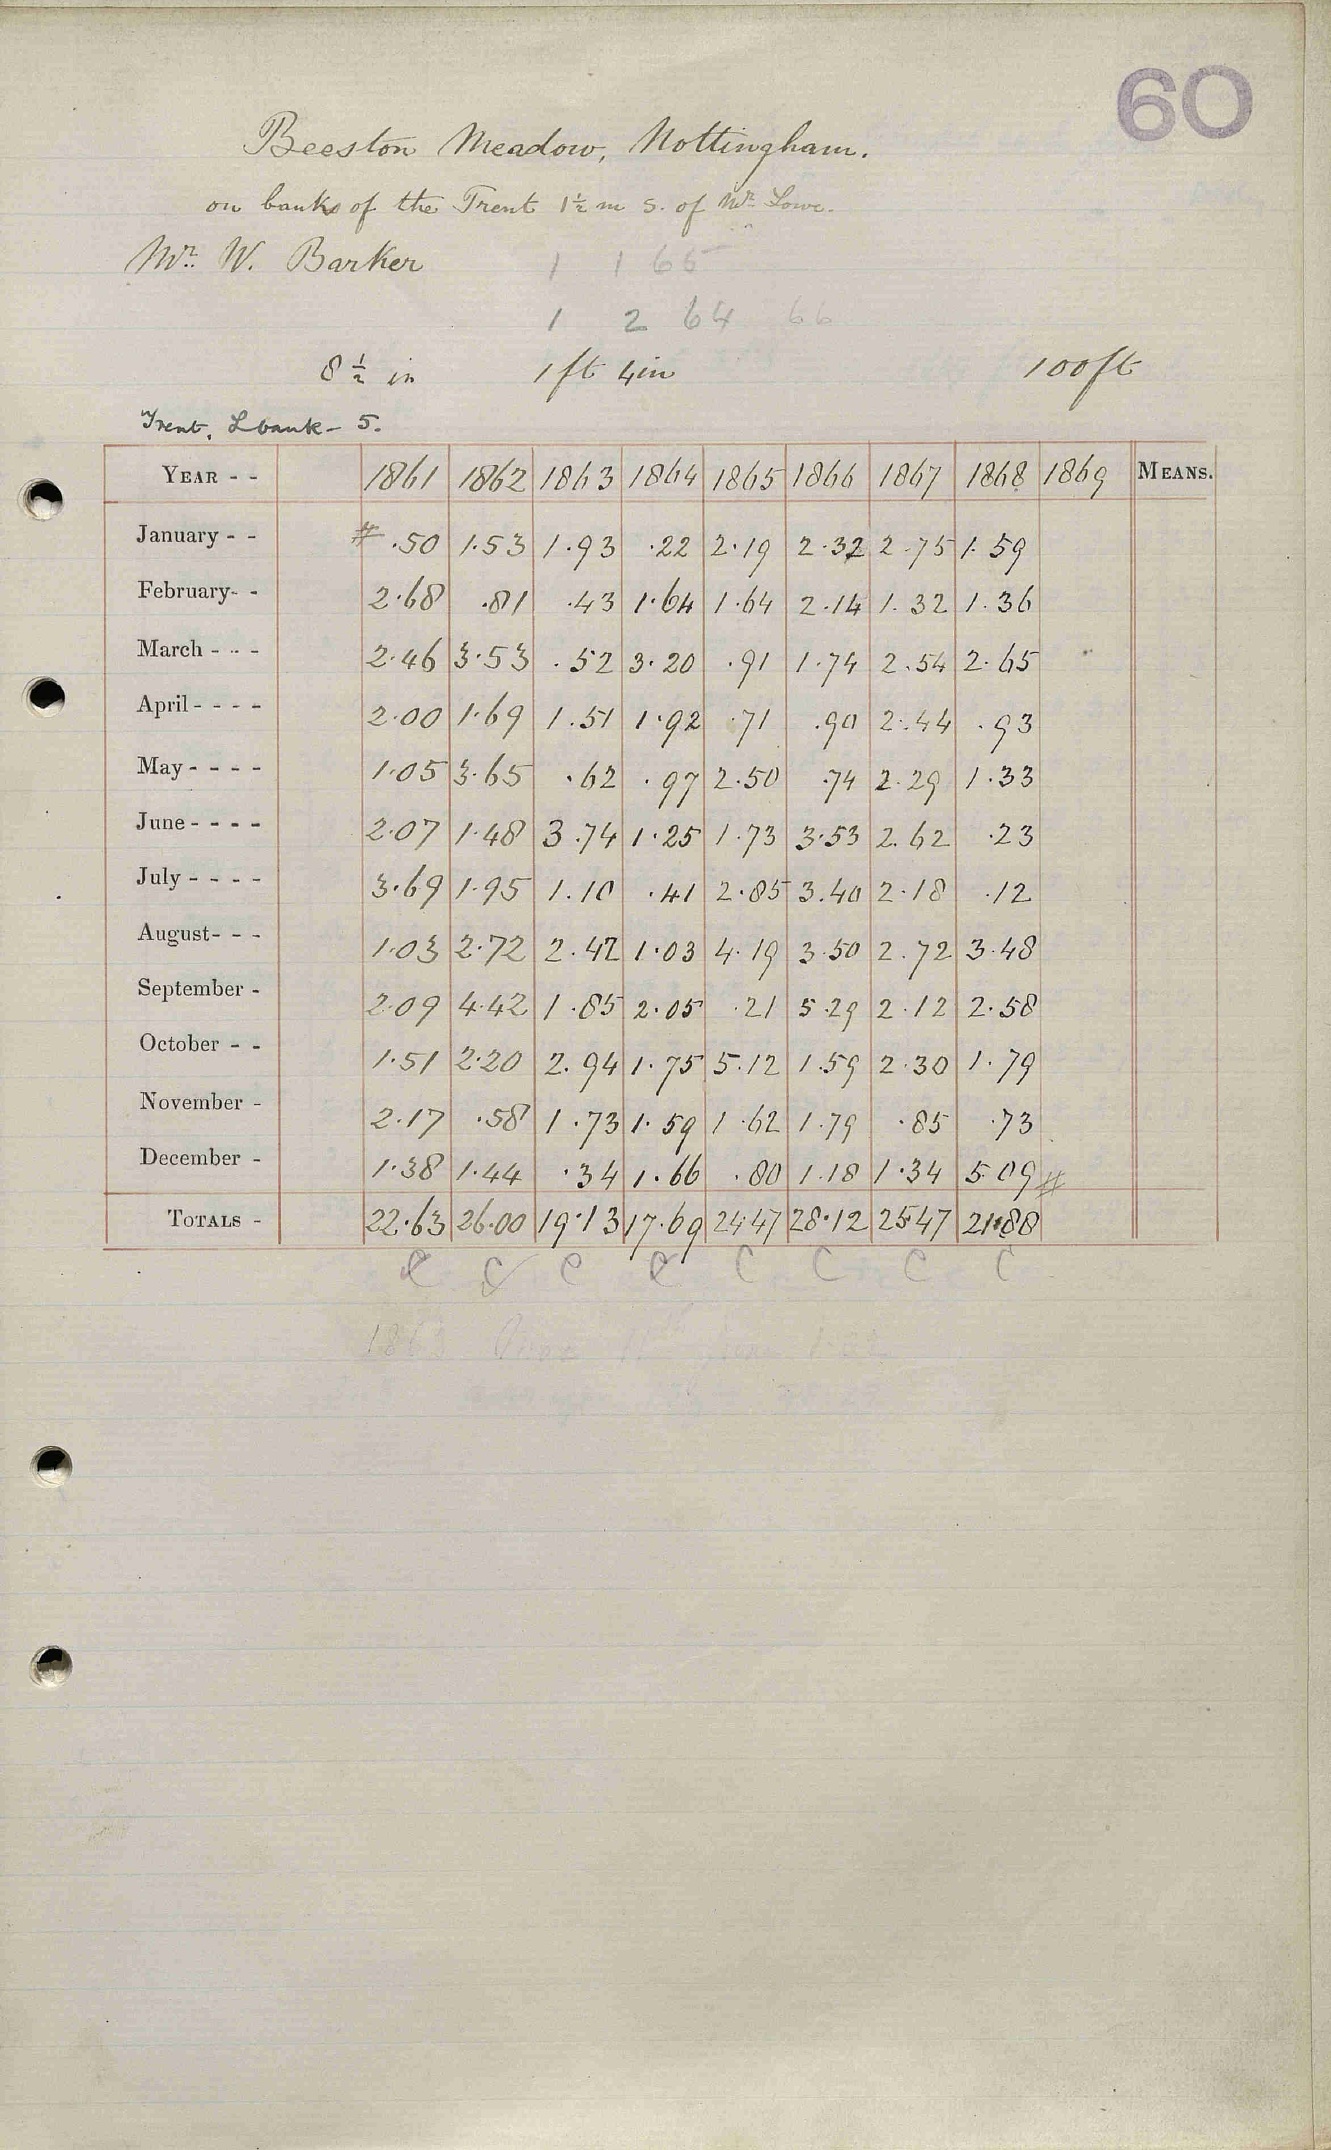 60
Beeston Meadow, Nottingham.
on banks of the Trent 1½ m S. of Mr. Lowe.
Mr. W. Barker 1 1 65
1 2 64 66
8 ½ in 1 ft 4 in 100 ft
Trent, L bank - 5.
YEAR - - 1861 1862 1863 1864 1865 1866 1867 1868 1869 MEANS.
January - - # .50 1.53 1.93 .22 2.19 2.32 2.75 1.59
February- - 2.68 .81 .43 1.64 1.64 2.14 1.32 1.36
March - - - 2.46 3.53 .52 3.20 .91 1.74 2.54 2.65
April - - - - 2.00 1.69 1.51 1.92 .71 .90 2.44 .93
May - - - - 1.05 3.65 .62 .97 2.50 .74 2.29 1.33
June - - - - 2.07 1.48 3.74 1.25 1.73 3.53 2.62 .23
July - - - - 3.69 1.95 1.10 .41 2.85 3.40 2.18 .12
August- - - 1.03 2.72 2.42 1.03 4.19 3.50 2.72 3.48
September - 2.09 4.42 1.85 2.05 .21 5.29 2.12 2.58
October - - 1.51 2.20 2.94 1.75 5.12 1.59 2.30 1.79
November - 2.17 .58 1.73 1.59 1.62 1.79 .85 .73
December - 1.38 1.44 .34 1.66 .80 1.18 1.34 5.09 #
TOTALS - 22.63 26.00 19.13 17.69 24.47 28.12 25.47 21.88
C C C C C C C C
1863